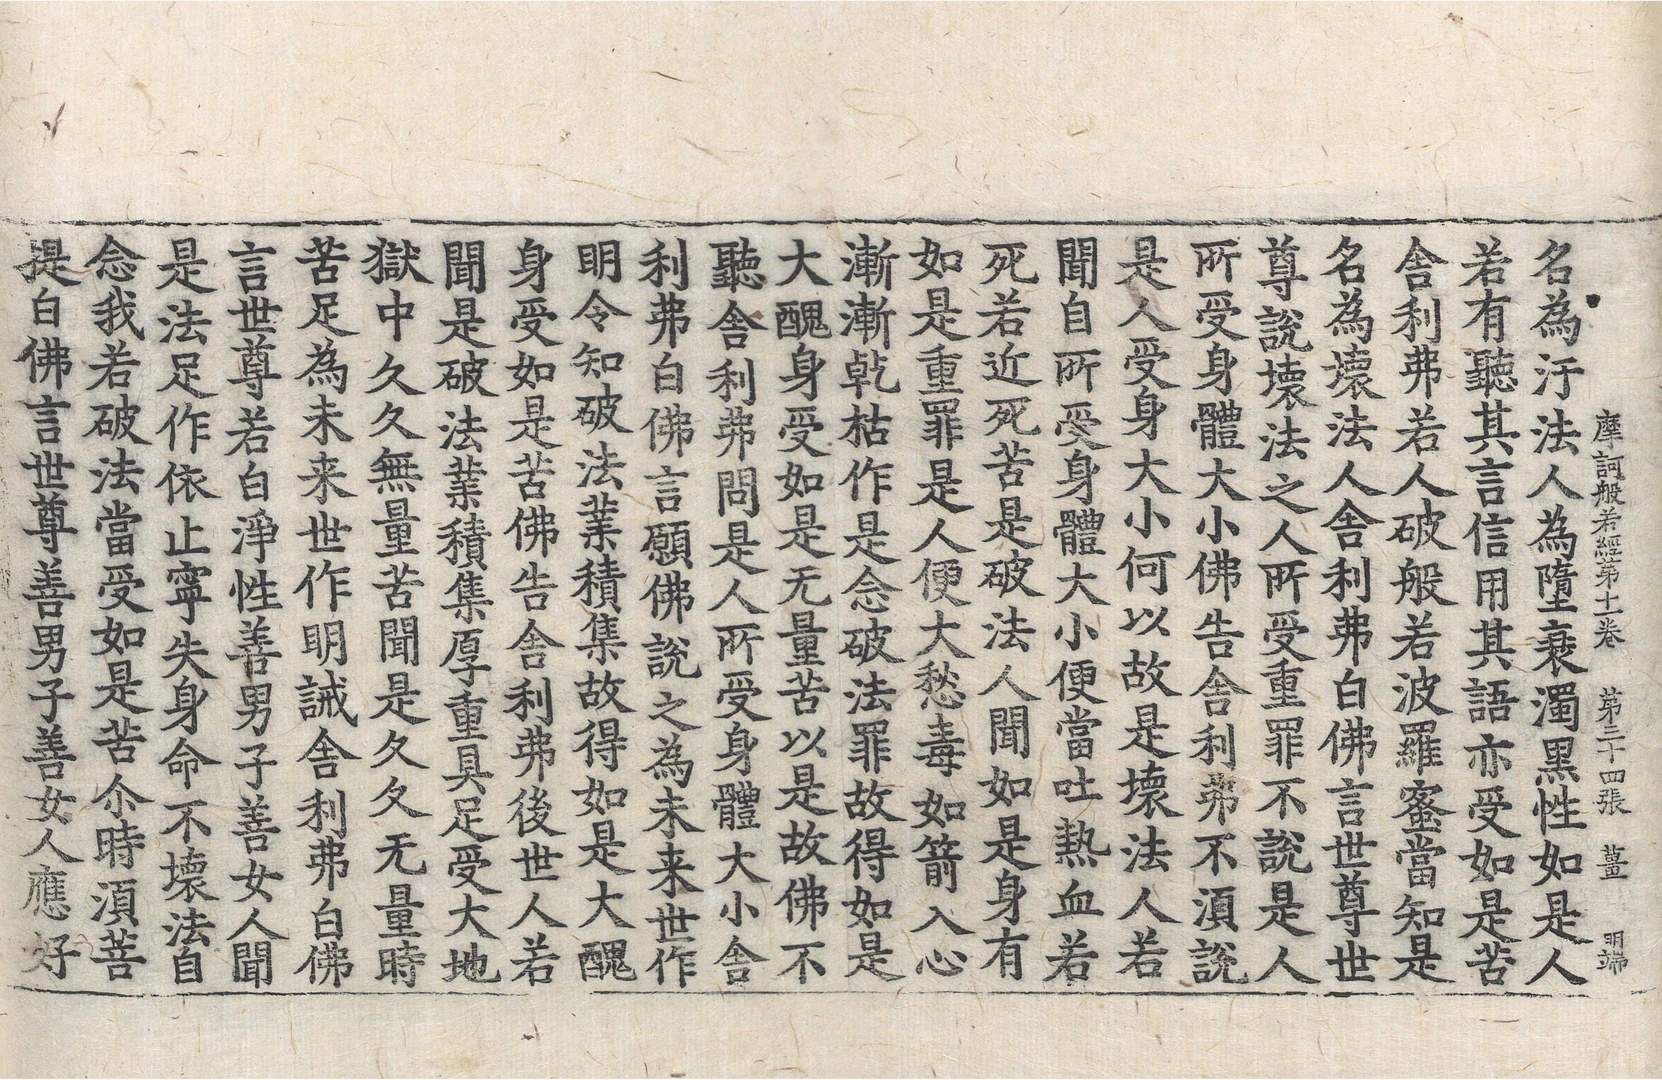 摩訶般若經第十一卷　第三十四張　薑　明端
名為汙法人為墮衰濁黑性如是人
若有聽其言信用其語亦受如是苦
舍利弗若人破般若波羅蜜當知是
名為壞法人舍利弗白佛言世尊世
尊說壞法之人所受重罪不說是人
所受身體大小佛告舍利弗不須說
是人受身大小何以故是壞法人若
聞自所受身體大小便當吐熱血若
死若近死苦是破法人聞如是身有
如是重罪是人便大愁毒如箭入心
漸漸乾枯作是念破法罪故得如是
大醜身受如是无量苦以是故佛不
聽舍利弗問是人所受身體大小舍
利弗白佛言願佛說之為未来世作
明令知破法業積集故得如是大醜
身受如是苦佛告舍利弗後世人若
聞是破法業積集厚重具足受大地
獄中久久無量苦聞是久久无量時
苦足為未来世作明誡舍利弗白佛
言世尊若白淨性善男子善女人聞
是法足作依止寧失身命不壞法自
念我若破法當受如是苦尒時須菩
提白佛言世尊善男子善女人應好